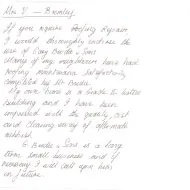 Mrs V — Bromley
If you require Roofing Repairs
I would thoroughly endorse the
use of Gary Burke & Sons
Many of my neighbours have had
roofing maintenance satisfactorily
completed by Mr Burke.
My own home is a Grade II listed
building and I have been
impressed with the quality, cost
and clearing away of aftermath
rubbish.
G Burke & Sons is a long
term small business and if
necessary I will call upon him
in future